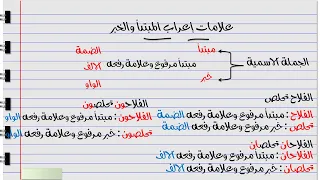 علامات إعراب المبتدأ والخبر
مبتدأ الضمة
الجملة الاسمية مبتدأ مرفوع وعلامة رفعه الألف
خبر الواو
الفلاح مخلص
الفلاح : مبتدأ مرفوع وعلامة رفعه الضمة
مخلص : خبر مرفوع وعلامة رفعه الضمة
الفلاحان مخلصان
الفلاحان : مبتدأ مرفوع وعلامة رفعه الألف
مخلصان : خبر مرفوع وعلامة رفعه الألف
الفلاحون مخلصون
الفلاحون : مبتدأ مرفوع وعلامة رفعه الواو
مخلصون : خبر مرفوع وعلامة رفعه الواو